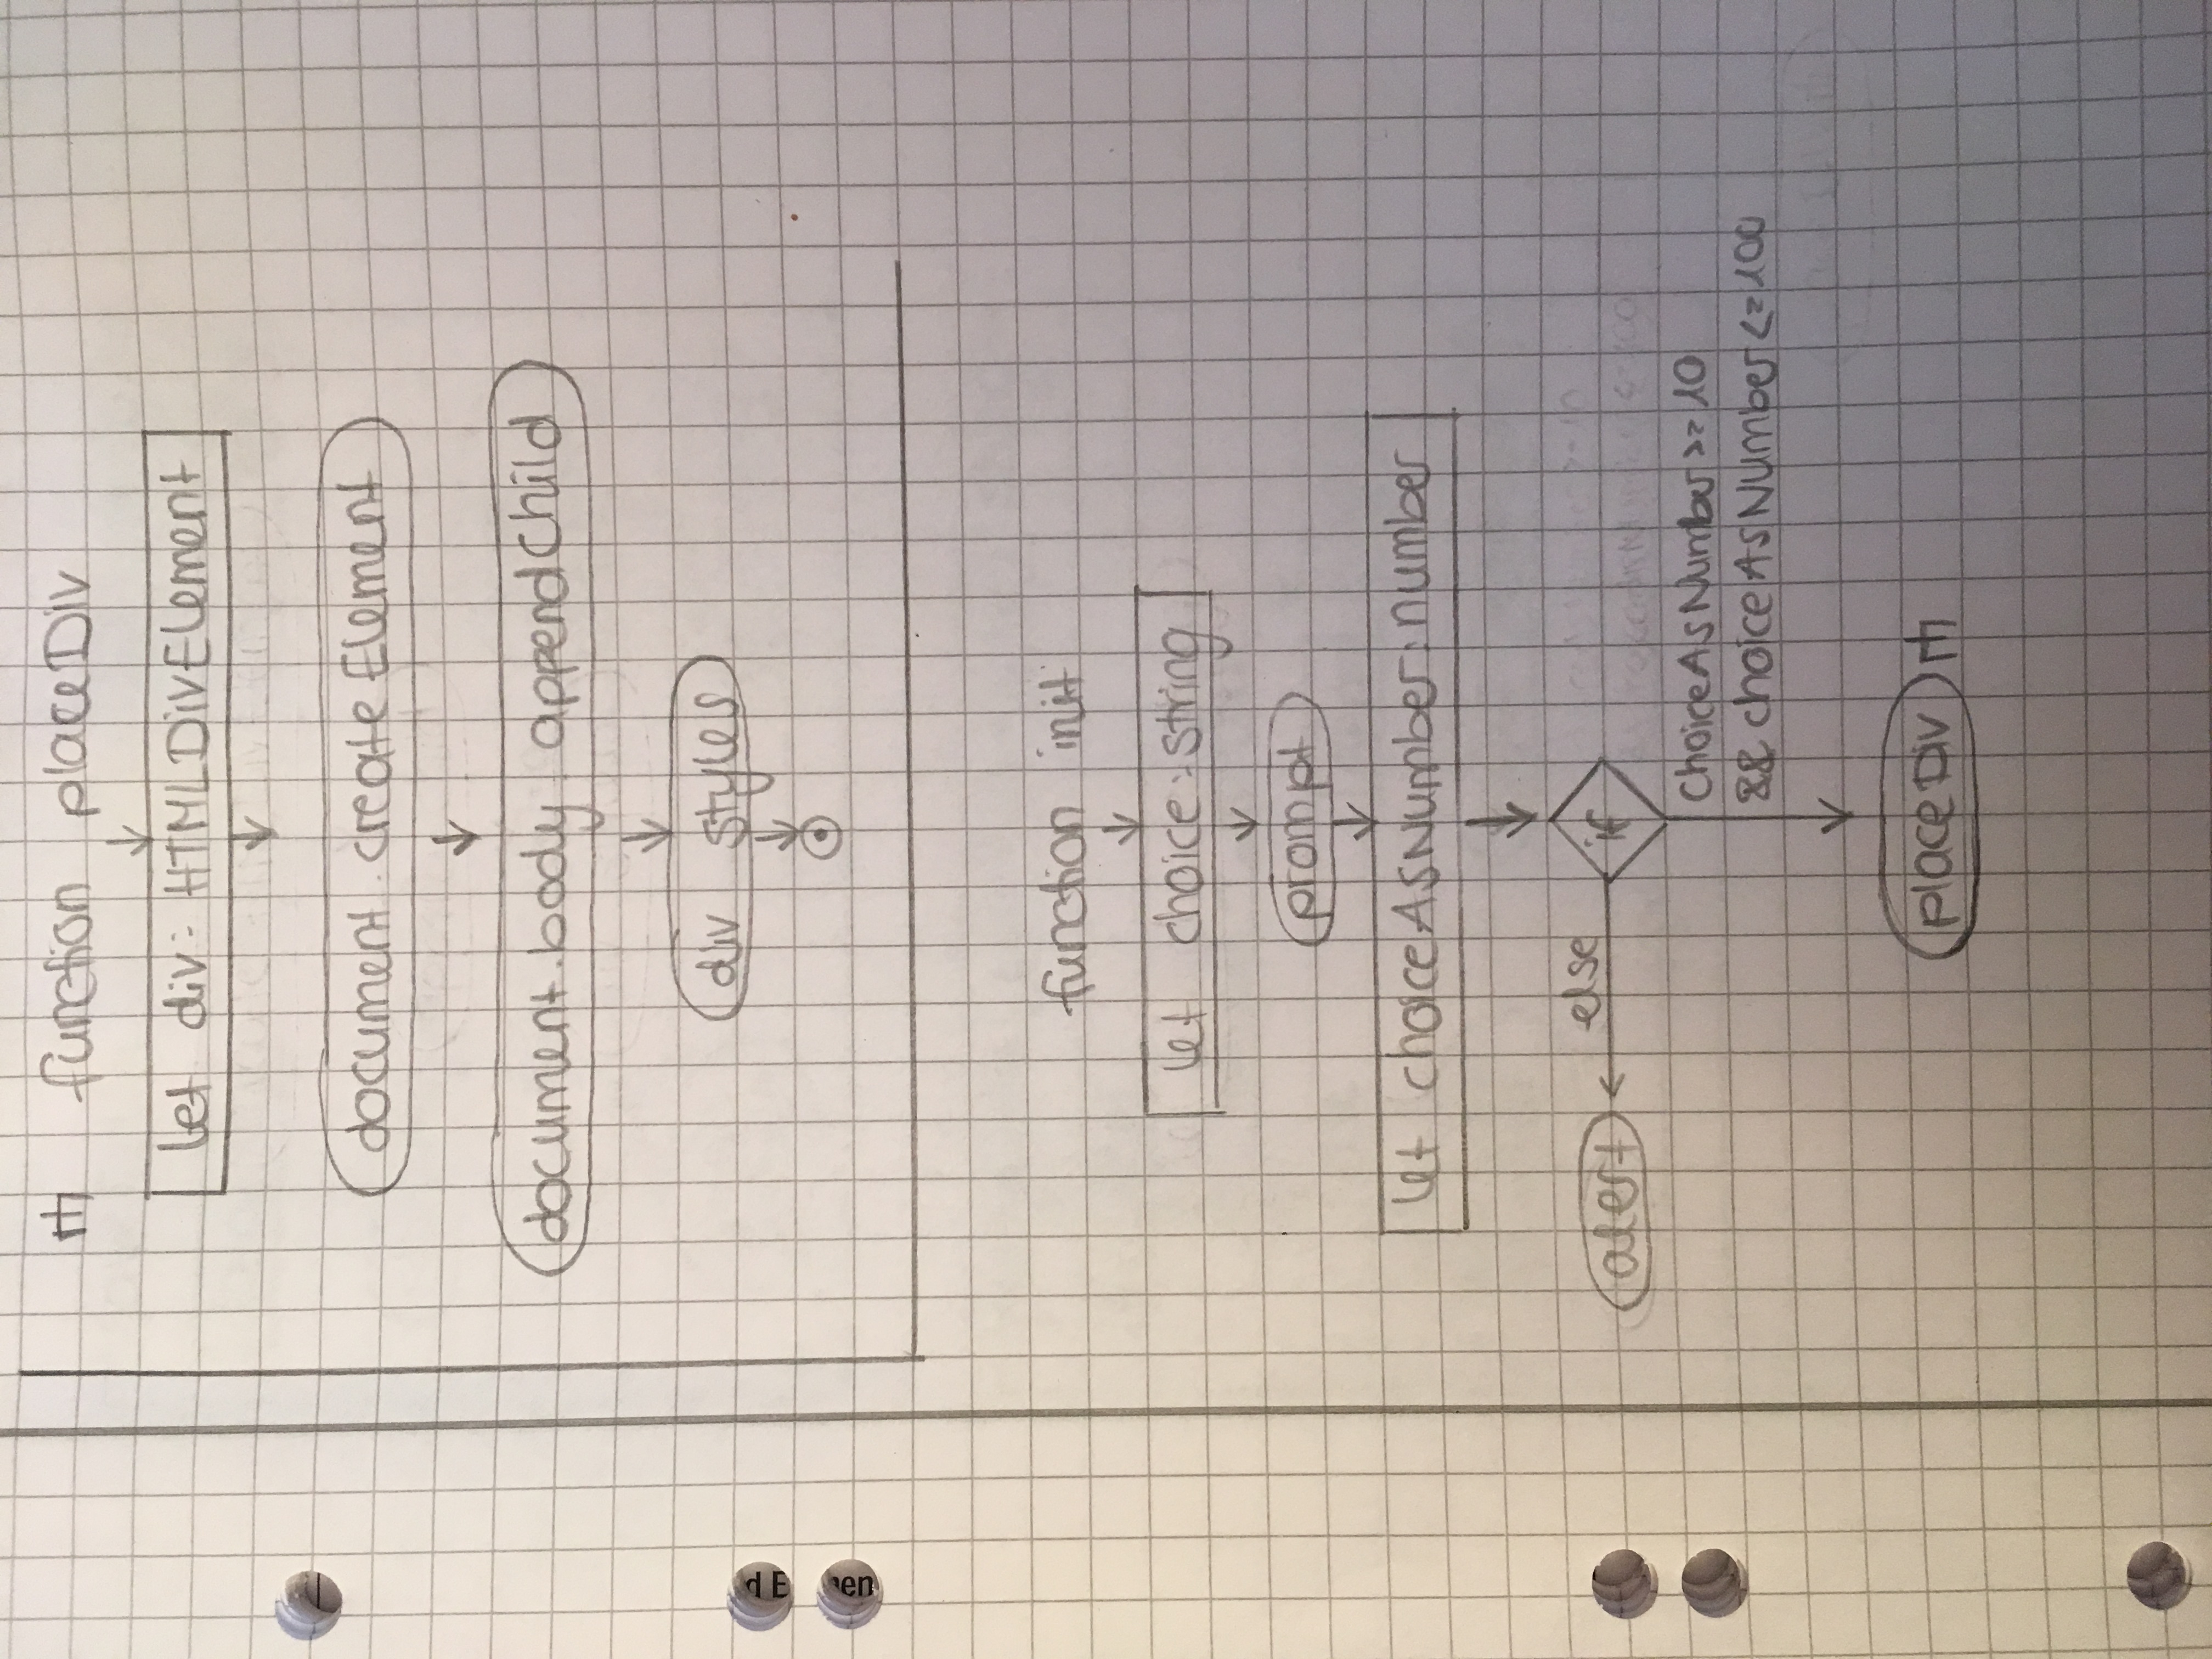 function placeDiv
let div: HTMLDivElement
document.createElement
document.body.appendChild
div styles
function init
let choice: string
prompt
let choiceAsNumber: number
else
if
alert
choiceAsNumber >= 10
&& choiceAsNumber <= 100
placeDiv
d E
en